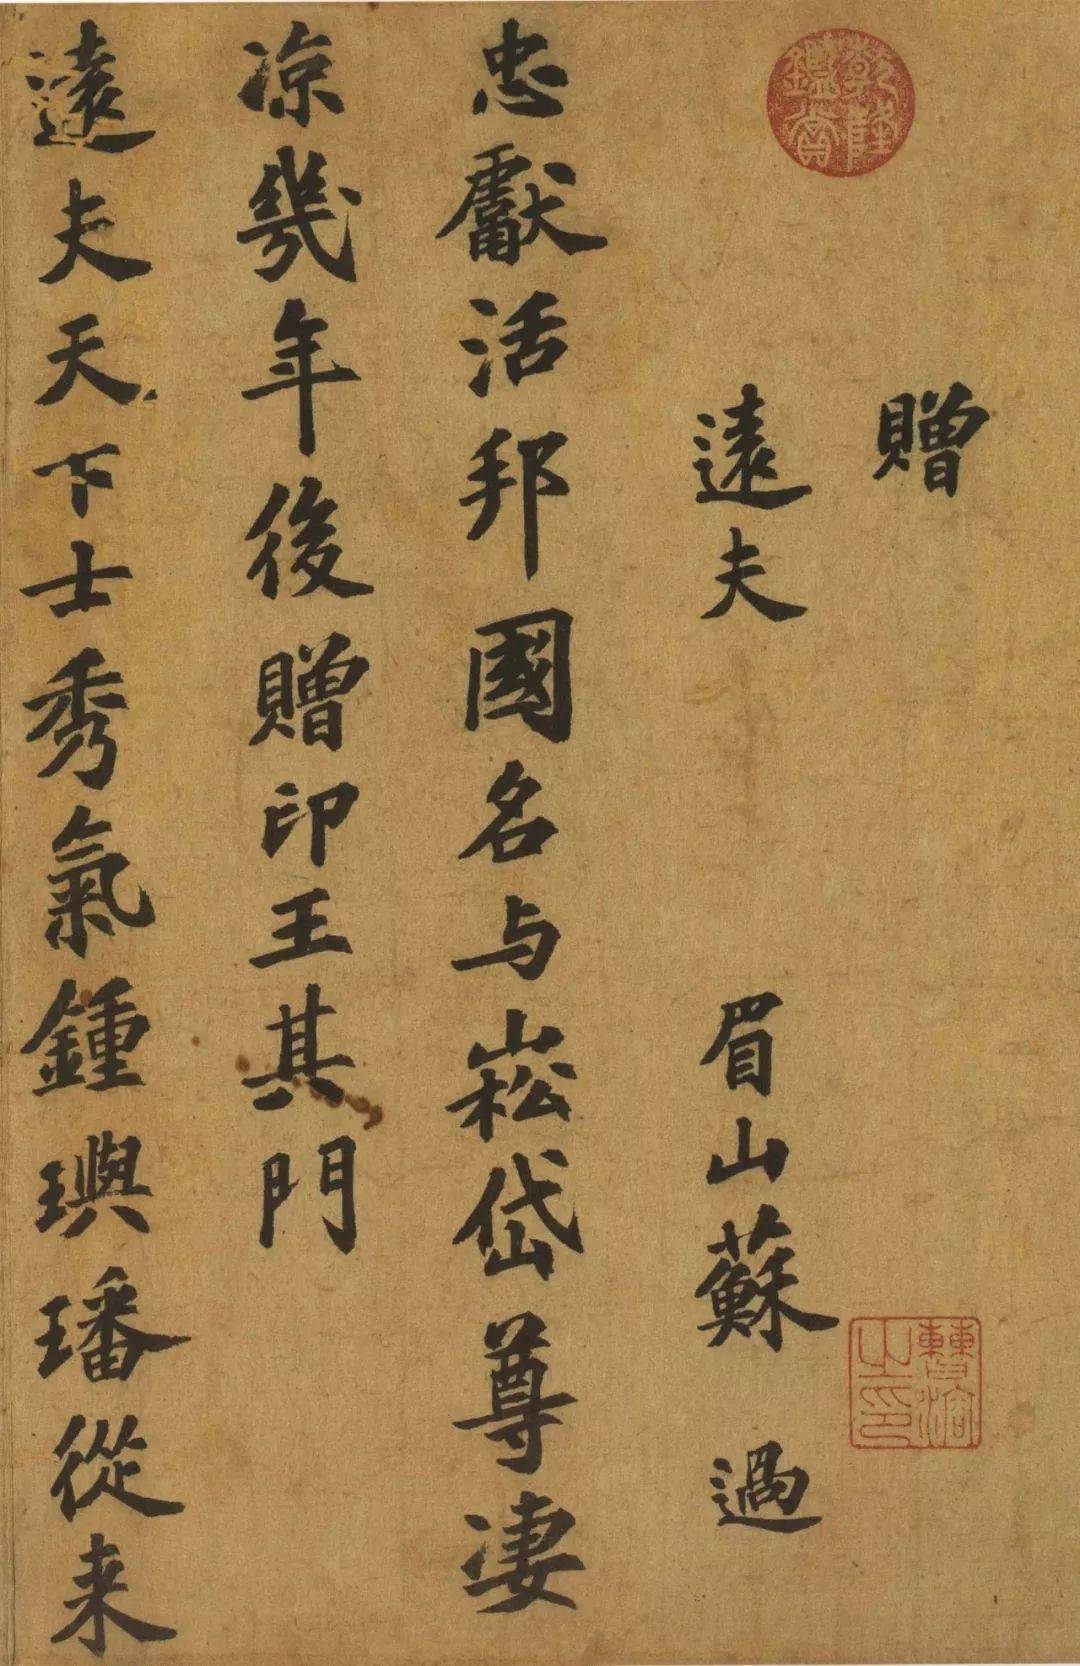 贈
遠夫
眉山蘇 過
忠獻活邦國名与崧岱尊凄
凉幾年後贈印王其門
遠夫天下士秀氣鍾璵璠從来
乾隆鑑賞
曹溶之印